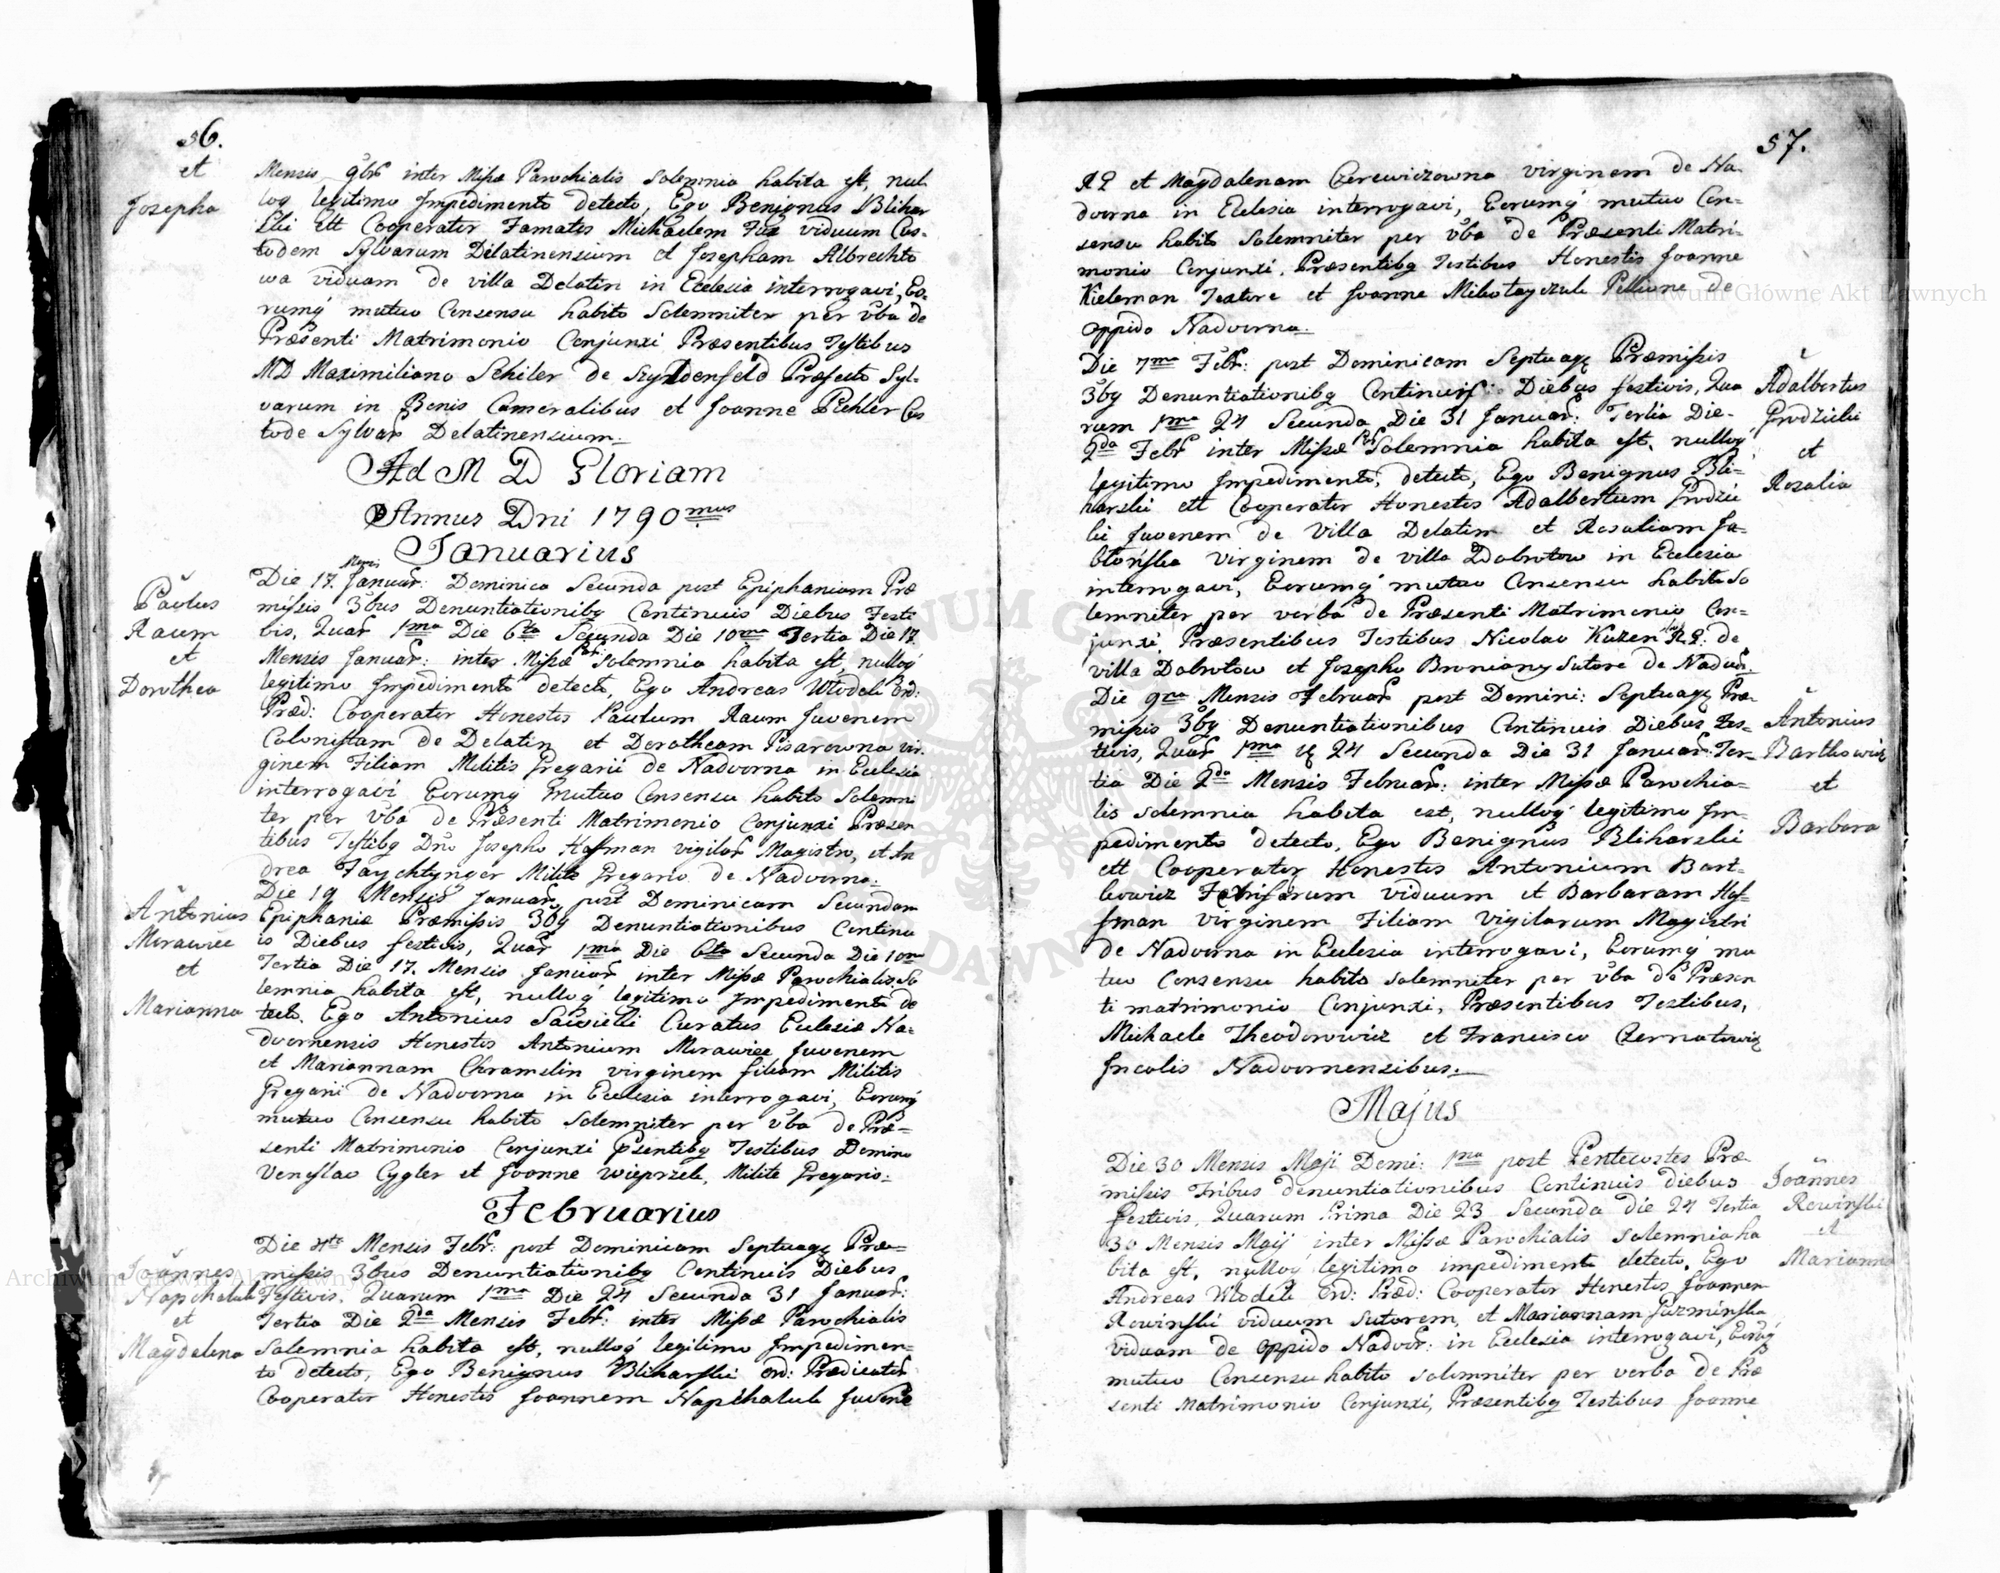 56.
et
Josepha
Mensis 9br inter Missæ Parochialis Solemnia habita est, nul
loq legitimo Impedimento detecto, Ego Benignus Blihar
ski Ett Cooperator Famatos Michaelem Fux viduum Cus-
todem Sylvarum Delatinensium et Josepham Albrechto
wa viduam de villa Delatin in Ecclesia interrogavi, Eo-
rumq mutuo Consensu habito Solemniter per vba de
Præsenti Matrimonio Conjunxi Præsentibus Testibus
MD Maximiliano Schiler de Præfecto Syl-
varum in Bonis Cameralibus et Joanne Pichler Cus
tode Sylvar Delatinensium.
Ad M D Gloriam
Annus Dni 1790mus
Januarius
Paulus
Raum
et
Dorothea
Die 17. Mensis Januar: Dominica Secunda post Epiphaniam Præ
missis 3bus Denuntiationibq Continuis Diebus Festi
bis, Quar 1ma Die 6ta Secunda Die 10ma Tertia Die 17.
Mensis Januar: inter Missæ Par: Solemnia habita est, nulloq
legitimo Impedimento detecto, Ego Andreas Wlodek Ord:
Præd: Cooperator Honestos Paulum Raum Juvenem
Colonistam de Delatin et Dorotheam Pisarowna vir-
ginem Filiam Militis Gregarii de Nadvorna in Ecclesia
interrogavi Eorumq mutuo Consensu habito Solemni
ter per vba de Præsenti Matrimonio Conjunxi Præsen
tibus Testibq Dno Josepho Hoffman vigilar Magistro, et An
drea Faychtynger Milite Gregario de Nadvorna.
Antonius
Morawiec
et
Marianna
Die 19 Mensis Januar post Dominicam Secundam
Epiphaniæ Præmissis 3bq Denuntiationibus Continu
is Diebus festivis, Quar 1ma Die 6ta Secunda Die 10ma
Tertia Die 17. Mensis Januar inter Missæ Parochialis So
lemnia habita est, nulloq legitimo Impedimento de
tecto. Ego Antonius Sawicki Curatus Ecclesiæ Na-
dvornensis Honestos Antonium Morawiec Juvenem
et Mariannam Chramelin virginem filiam Militis
Gregarii de Nadvorna in Ecclesia interrogavi, Eorumq
mutuo Consensu habito Solemniter per vba de Præ-
senti Matrimonio Conjunxi Psentibq Testibus Domino
Venslao Cygler et Joanne Wieprzek, Milite Gregario.
Februarius
Joannes
Napchaluk
et
Magdalena
Die 4ta Mensis Febr: post Dominicam Septuagq Præ-
missis 3bus Denuntiationibq Continuis Diebus
Festivis. Quarum 1ma Die 24 Secunda 31 Januar:
Tertia Die 2da Mensis Febr: inter Missæ Parochialis
Solemnia habita est, nulloq legitimo Impedimen-
to detecto, Ego Benignus Bliharski Ord: Prædicator
Cooperator Honestos Joannem Napchaluk Juvene
57.
RP et Magdalenam Czerewiczowna virginem de Na-
dvorna in Ecclesia interrogavi, Eorumq mutuo Con-
sensu habito Solemniter per vba de Præsenti Matri-
monio Conjunxi. Præsentibq Testibus Honestis Joanne
Kieleman Textore et Joanne Mikolayczuk Pellione de
oppido Nadvorna.
Adalbertus
Grodzicki
et
Rosalia
Die 7ma Febr: post Dominicam Septuagq Præmissis
3bq Denuntiationibq Continuis Diebus festivis, Qua
rum 1ma 24 Secunda Die 31 Januar: Tertia Die-
2da Febr inter Missæ Par Solemnia habita est, nulloq
legitimo Impedimento, detecto, Ego Benignus Bli-
harski ett Cooperator Honestos Adalbertum Grodzic
ki Juvenem de Villa Delatin et Rosaliam Ja-
blonska virginem de villa Dobrotow in Ecclesia
interrogavi, Eorumq mutuo Consensu habito So
lemniter per verba de Præsenti Matrimonio Con-
junxi, Præsentibus Testibus Nicolao Kuzen RP: de
villa Dobrotow et Josepho Broniany Sutore de Nadvor.
Antonius
Bartlowicz
et
Barbara
Die 9na Mensis Februar post Domini: Septuagq Præ-
missis 3bq Denuntiationibus Continuis Diebus Fes-
tivis, Quar 1ma 24 Secunda Die 31 Januar: Ter-
tia Die 2da Mensis Februar: inter Missæ Parochia-
lis solemnia habita est, nulloq legitimo Im-
pedimento detecto, Ego Benignus Bliharski
ett Cooperator Honestos Antonium Bart-
lowicz viduum et Barbaram Hof-
fman virginem Filiam Vigilarum Magistri
de Nadvorna in Ecclesia interrogavi, Eorumq mu
tuo Consensu habito solemniter per vba de Præsen
ti matrimonio Conjunxi, Præsentibus Testibus,
Michaele Theodorowicz et Francisco Czernatowicz
Incolis Nadvornensibus.
Majus
Joannes
Rowinski
et
Marianna
Die 30 Mensis Maji Domi: 1ma post Pentecostes Præ-
missis Tribus denuntiationibus Continuis diebus
Festivis, Quarum Prima Die 23 Secunda die 24 Tertia
30 Mensis Maij inter Missæ Parochialis solemnia ha
bita est, nulloq legitimo impedimento detecto, Ego
Andreas Wlodek Ord: Præd: Cooperator Honestos Joannem
Rowinski viduum Sutorem, et Mariannam Juzminska
viduam de Oppido Nadvor: in Ecclesia interrogavi, Eorumq
mutuo Consensu habito solemniter per verba de Præ
senti Matrimonio Conjunxi, Præsentibq Testibus Joanne
Archiwum Główne Akt Dawnych
Archiwum Główne Akt Dawnych